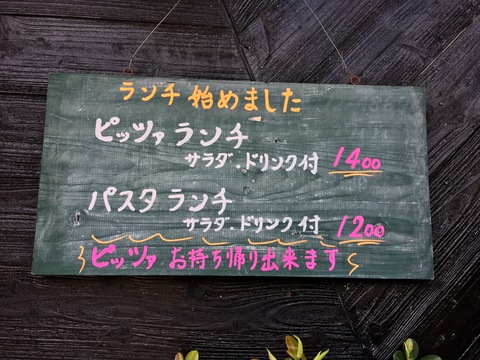 ランチ 始めました
ピッツァ ランチ
サラダ・ドリンク付 1400
パスタ ランチ
サラダ・ドリンク付 1200
ピッツァ お持ち帰り出来ます